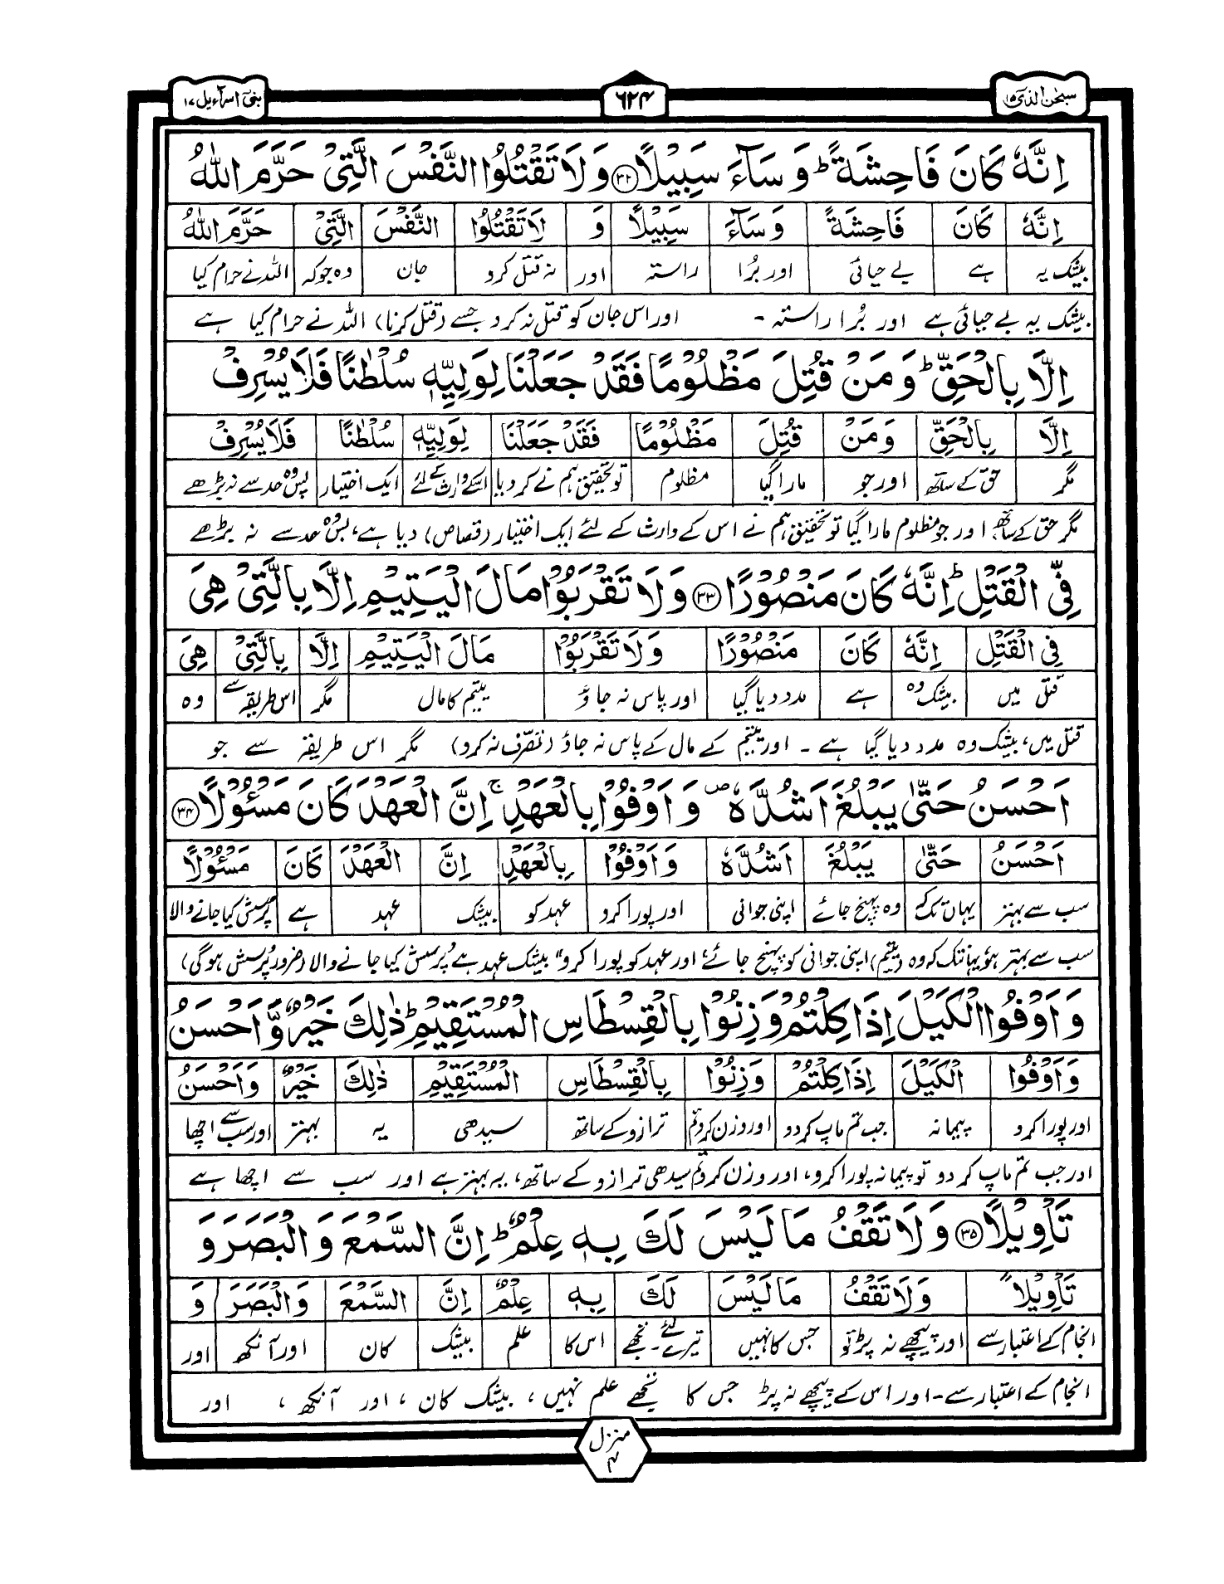 سبحٰن الذی ۱۵
۶۲۴
بنی اسرآءیل ۱۷
اِنَّهٗ كَانَ فَاحِشَةً ؕ وَ سَآءَ سَبِیْلًا ۝۳۲ وَ لَا تَقْتُلُوا النَّفْسَ الَّتِیْ حَرَّمَ اللّٰهُ
اِنَّهٗ كَانَ فَاحِشَةً وَسَآءَ سَبِیْلًا وَ لَا تَقْتُلُوا النَّفْسَ الَّتِیْ حَرَّمَ اللّٰهُ
بیشک یہ ہے بے حیائی اور بُرا راستہ اور نہ قتل کرو جان وہ جو کہ اللہ نے حرام کیا
بیشک یہ بے حیائی ہے اور بُرا راستہ - اور اس جان کو قتل نہ کرو جسے (قتل کرنا) اللہ نے حرام کیا ہے
اِلَّا بِالْحَقِّ ؕ وَ مَنْ قُتِلَ مَظْلُوْمًا فَقَدْ جَعَلْنَا لِوَلِیِّهٖ سُلْطٰنًا فَلَا یُسْرِفْ
اِلَّا بِالْحَقِّ وَمَنْ قُتِلَ مَظْلُوْمًا فَقَدْ جَعَلْنَا لِوَلِیِّهٖ سُلْطٰنًا فَلَا یُسْرِفْ
مگر حق کے ساتھ اور جو مارا گیا مظلوم تو تحقیق ہم نے کر دیا اسکے وارث کے لئے ایک اختیار پس وہ حد سے نہ بڑھے
مگر حق کے ساتھ، اور جو مظلوم مارا گیا تو تحقیق ہم نے اس کے وارث کے لئے ایک اختیار (قصاص) دیا ہے، پس وہ حد سے نہ بڑھے
فِّی الْقَتْلِ ؕ اِنَّهٗ كَانَ مَنْصُوْرًا ۝۳۳ وَ لَا تَقْرَبُوْا مَالَ الْیَتِیْمِ اِلَّا بِالَّتِیْ هِیَ
فِی الْقَتْلِ اِنَّهٗ كَانَ مَنْصُوْرًا وَلَا تَقْرَبُوْا مَالَ الْیَتِیْمِ اِلَّا بِالَّتِیْ هِیَ
قتل میں بیشک وہ ہے مدد دیا گیا اور پاس نہ جاؤ یتیم کا مال مگر اس طریقہ سے وہ
قتل میں، بیشک وہ مدد دیا گیا ہے - اور یتیم کے مال کے پاس نہ جاؤ (تصرف نہ کرو) مگر اس طریقہ سے جو
اَحْسَنُ حَتّٰی یَبْلُغَ اَشُدَّهٗ ۪ وَ اَوْفُوْا بِالْعَهْدِ ۚ اِنَّ الْعَهْدَ كَانَ مَسْـُٔوْلًا ۝۳۴
اَحْسَنُ حَتّٰی یَبْلُغَ اَشُدَّهٗ وَاَوْفُوْا بِالْعَهْدِ اِنَّ الْعَهْدَ كَانَ مَسْـُٔوْلًا
سب سے بہتر یہاں تک کہ وہ پہنچ جائے اپنی جوانی اور پورا کرو عہد کو بیشک عہد ہے پُرسش کیا جانے والا
سب سے بہتر ہو یہانتک کہ وہ (یتیم) اپنی جوانی کو پہنچ جائے، اور عہد کو پورا کرو، بیشک عہد ہے پُرسش کیا جانے والا (ضرور پُرسش ہوگی)
وَ اَوْفُوا الْكَیْلَ اِذَا كِلْتُمْ وَ زِنُوْا بِالْقِسْطَاسِ الْمُسْتَقِیْمِ ؕ ذٰلِكَ خَیْرٌ وَّ اَحْسَنُ
وَاَوْفُوا الْكَیْلَ اِذَا كِلْتُمْ وَزِنُوْا بِالْقِسْطَاسِ الْمُسْتَقِیْمِ ذٰلِكَ خَیْرٌ وَاَحْسَنُ
اور پورا کرو پیمانہ جب تم ماپ کر دو اور وزن کرو تم ترازو کے ساتھ سیدھی یہ بہتر اور سب سے اچھا
اور جب تم ماپ کر دو تو پیمانہ پورا کرو، اور وزن کرو تم سیدھی ترازو کے ساتھ، یہ بہتر ہے اور سب سے اچھا ہے
تَاْوِیْلًا ۝۳۵ وَ لَا تَقْفُ مَا لَیْسَ لَكَ بِهٖ عِلْمٌ ؕ اِنَّ السَّمْعَ وَ الْبَصَرَ وَ
تَاْوِیْلًا وَلَا تَقْفُ مَا لَیْسَ لَكَ بِهٖ عِلْمٌ اِنَّ السَّمْعَ وَالْبَصَرَ وَ
انجام کے اعتبار سے اور پیچھے نہ پڑ تو جس کا نہیں تیرے لئے۔ تجھے اس کا علم بیشک کان اور آنکھ اور
انجام کے اعتبار سے - اور اس کے پیچھے نہ پڑ جس کا تجھے علم نہیں، بیشک کان، اور آنکھ، اور
منزل
۴